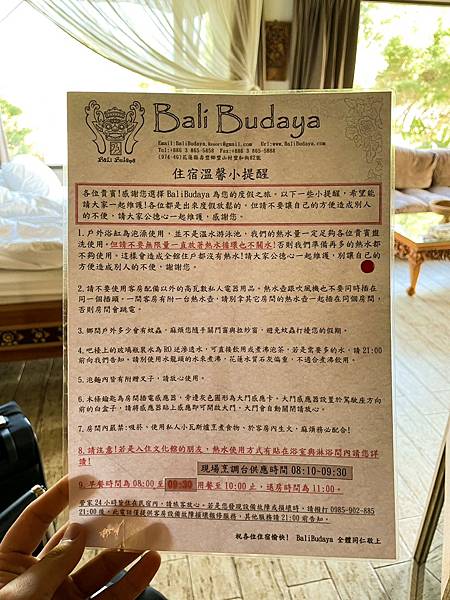 Bali Budaya
Email:BaliBudaya.Resort@gmail.com Url:www.BaliBudaya.com
Tel:+886 3 865-5658 Fax:+886 3 865-5888
(974-46)花蓮縣壽豐鄉豐山村豐和街82號
住宿溫馨小提醒
各位貴賓!感謝您選擇 BaliBudaya 為您的度假之旅。以下一些小提醒,希望能
請大家一起維護!各位都是出來度假放鬆的,但請不要讓自己的方便造成別人
的不便,請大家公德心一起維護,感謝您。
1.戶外浴缸為泡澡使用,並不是溫水游泳池,我們的熱水量一定足夠各位貴賓盥
洗使用。但請不要無限量一直放著熱水循環也不關水!否則我們準備再多的熱水都
不夠使用。這樣會造成全館住戶都沒有熱水!請大家公德心一起維護,別讓自己的
方便造成別人的不便,謝謝您。
2.請不要使用客房配備以外的高瓦數私人電器用品。熱水壺跟吹風機也不要同時插在
同一個插頭,一間客房有附一台熱水壺,請別拿其它房間的熱水壺一起插在同個房間,
否則房間會跳電。
3.鄉間戶外多少會有蚊蟲,麻煩您隨手關門窗與拉紗窗,避免蚊蟲打擾您的假期。
4.吧檯上的玻璃瓶裝水為 RO 逆滲透水,可直接飲用或煮沸泡茶,若是需要多的水,請 21:00
前向我們告知。請別使用水龍頭的水來煮沸,花蓮水質石灰偏重,不適合煮沸飲用。
5.泡麵內皆有附贈叉子,請放心使用。
6.木條鑰匙為房間插電感應器,旁邊灰色圓形為大門感應卡。大門感應器放置於駕駛座方向
前的白盒子,請將感應器貼上感應即可開啟大門,大門會自動關閉請放心。
7.房間內嚴禁:吸菸,使用私人小瓦斯爐烹煮食物,於客房內生火,麻煩務必配合!
8.請注意!若是入住文化館的朋友,熱水使用方式有貼在浴室與淋浴間內請您詳
讀!
現場烹調台供應時間 08:10-09:30
9.早餐時間為 08:00 至 09:30 用餐至 10:00 止,退房時間為 11:00。
管家 24 小時皆住在民宿內,請旅客放心。若是您發現設備故障或損壞時,請撥打 0985-902-885
21:00 後,此電話僅提供客房設備故障損壞報修服務,其他服務請 21:00 前告知。
祝各位住宿愉快! BaliBudaya 全體同仁敬上